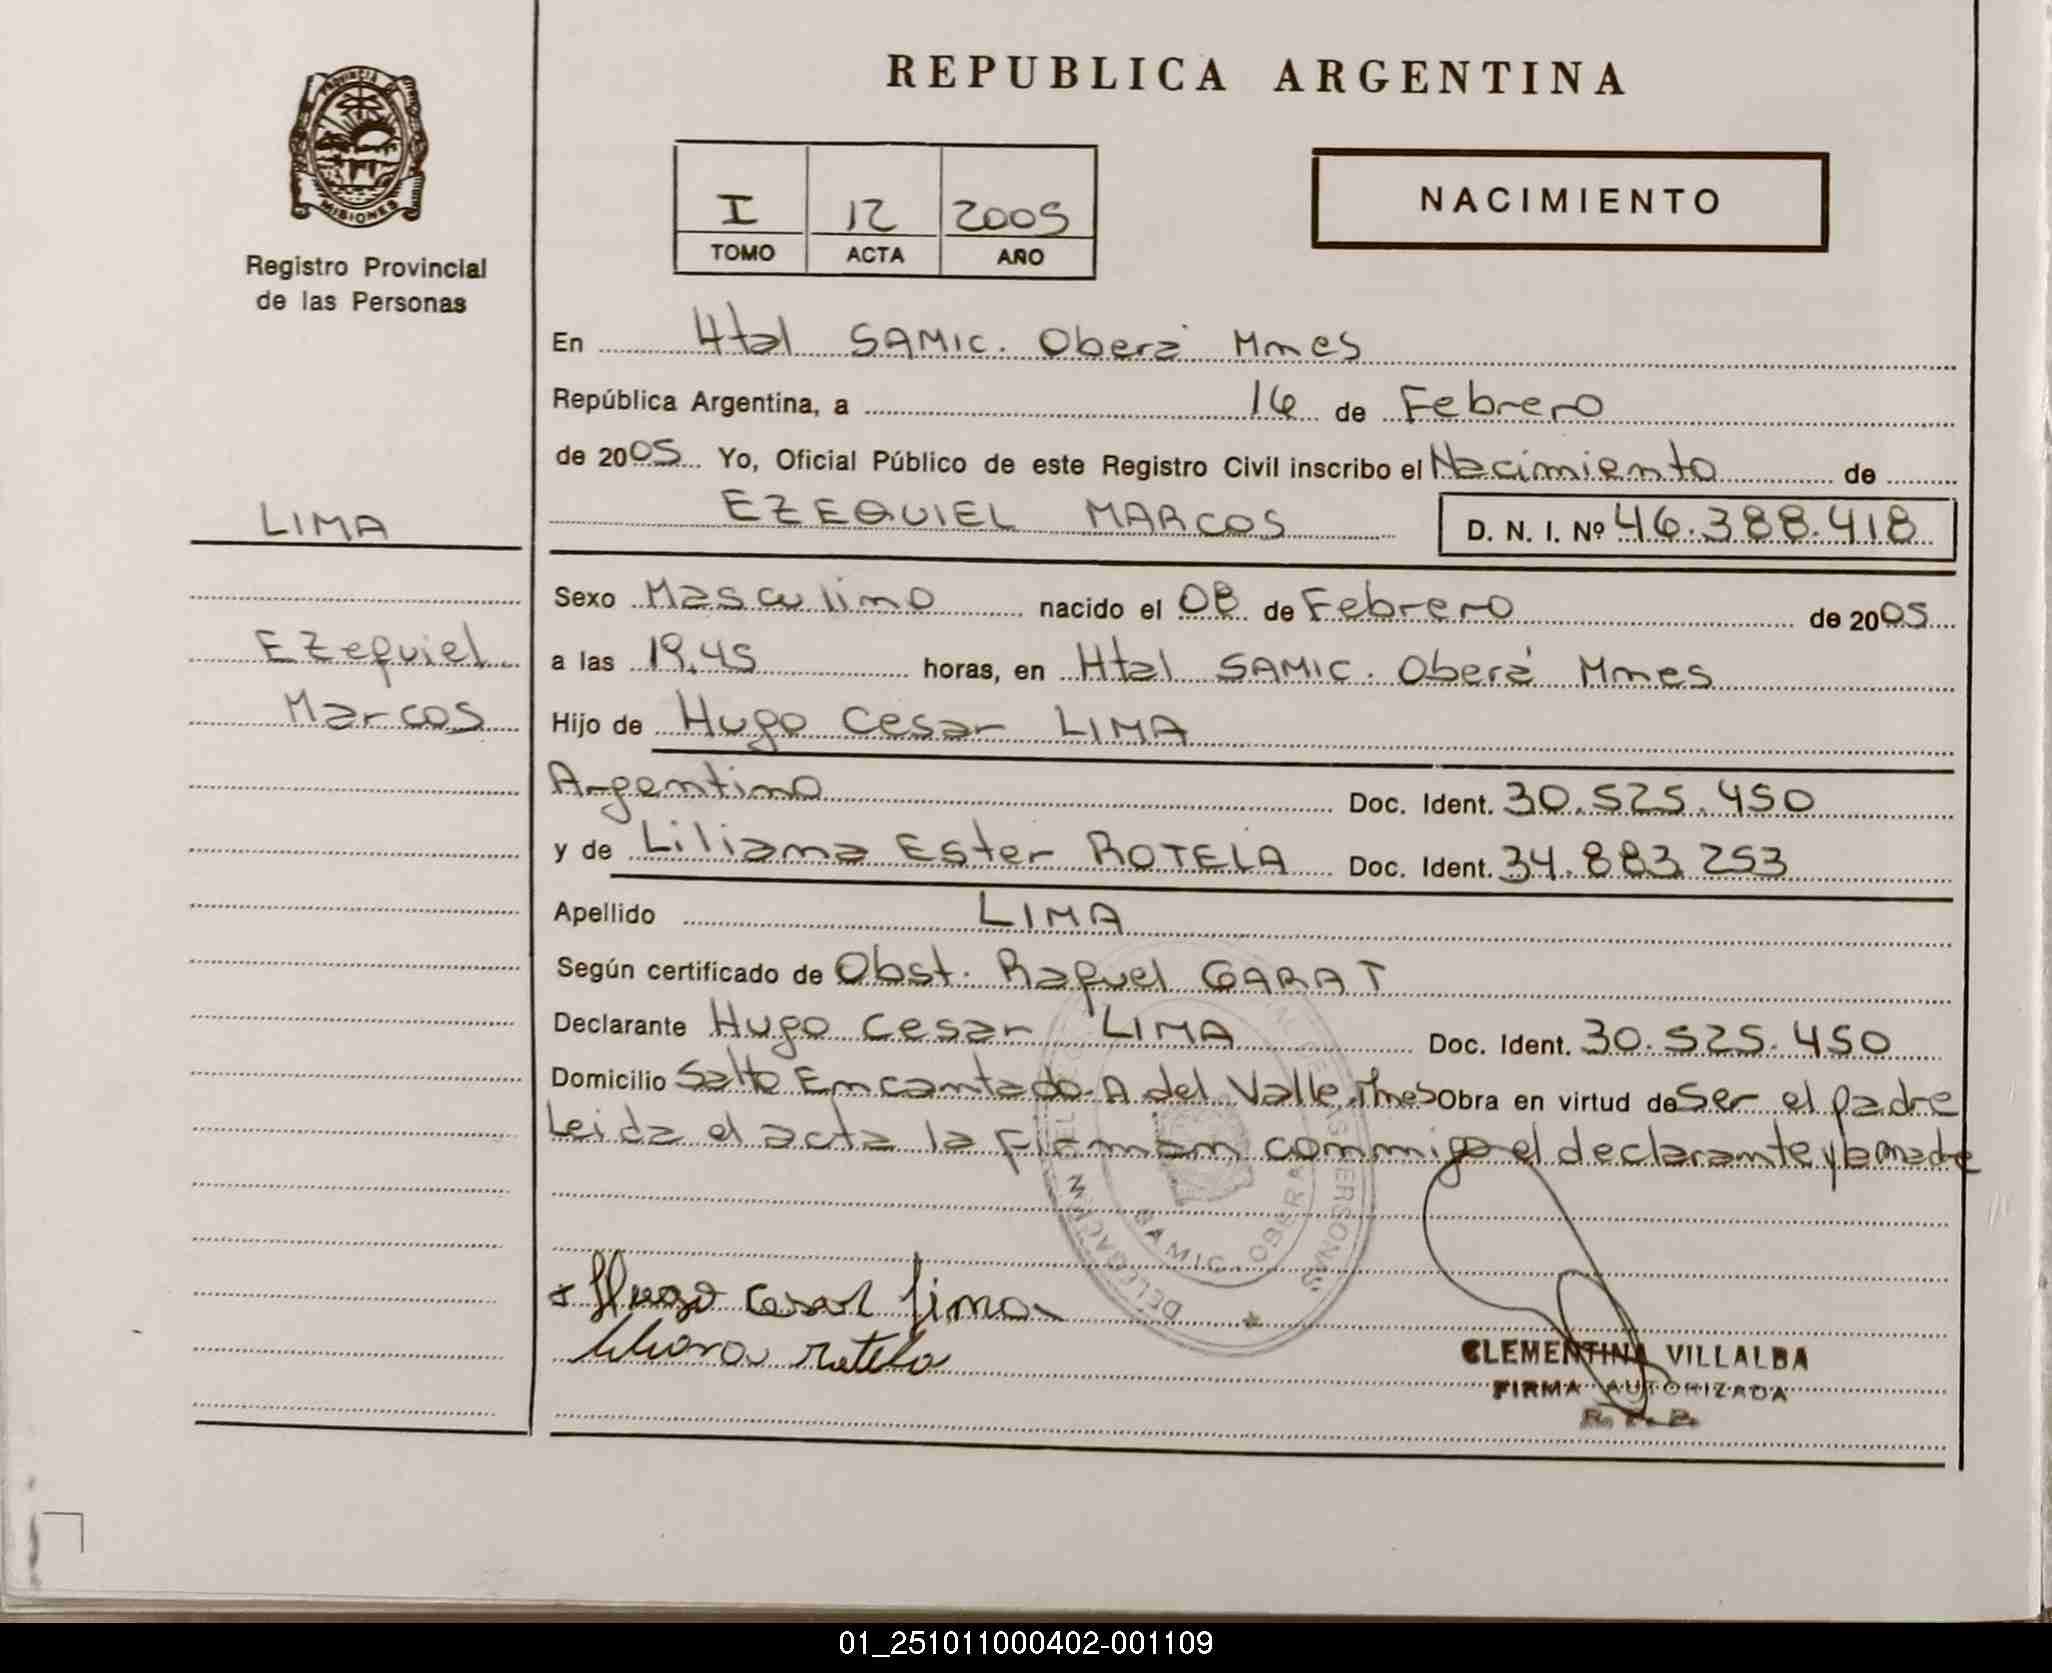 REPUBLICA ARGENTINA
PROVINCIA
MISIONES
Registro Provincial
de las Personas
I 12 2005
TOMO ACTA AÑO
NACIMIENTO
En Htal SAMIC. Oberá Mnes
República Argentina, a 16 de Febrero
de 2005 Yo, Oficial Público de este Registro Civil inscribo el Nacimiento de
LIMA
EZEQUIEL MARCOS D. N. I. Nº 46.388.418
Sexo Masculino nacido el 08 de Febrero de 2005
Ezequiel
a las 19.45 horas, en Htal SAMIC. Oberá Mnes
Marcos
Hijo de Hugo Cesar LIMA
Argentino Doc. Ident. 30.525.450
y de Liliana Ester ROTELA Doc. Ident. 34.883.253
Apellido LIMA
Según certificado de Obst. Raquel GARAT
Declarante Hugo Cesar LIMA Doc. Ident. 30.525.450
Domicilio Salto Encantado-A del Valle, Mnes Obra en virtud de Ser el padre
Leida el acta la firman conmigo el declarante y la madre
SAMIC. OBERA
Hugo Cesar Lima
Liliana Rotela
CLEMENTINA VILLALBA
FIRMA AUTORIZADA
R. P. P.
01_251011000402-001109